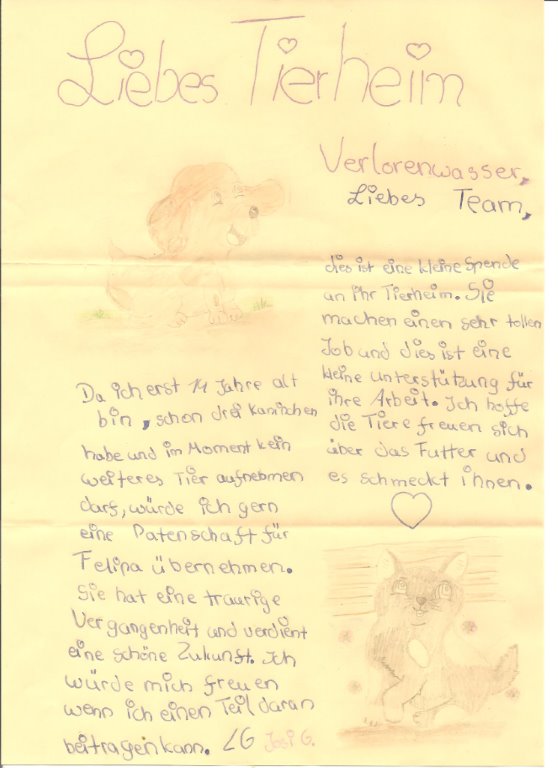 Liebes Tierheim
Verlorenwasser,
Liebes Team,
dies ist eine kleine Spende
an ihr Tierheim. Sie
machen einen sehr tollen
Job und dies ist eine
kleine Unterstützung für
ihre Arbeit. Ich hoffe
die Tiere freuen sich
über das Futter und
es schmeckt ihnen.
Da ich erst 11 Jahre alt
bin, schon drei Kaninchen
habe und im Moment kein
weiteres Tier aufnehmen
darf, würde ich gern
eine Patenschaft für
Felipa übernehmen.
Sie hat eine traurige
Vergangenheit und verdient
eine schöne Zukunft. Ich
würde mich freuen
wenn ich einen Teil daran
beitragen kann. LG Josi G.